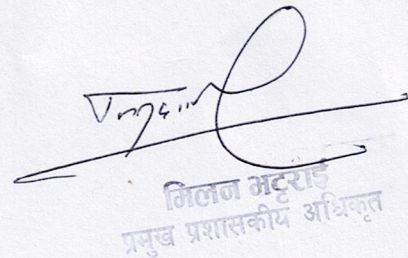 मिलन भट्टराई
प्रमुख प्रशासकीय अधिकृत